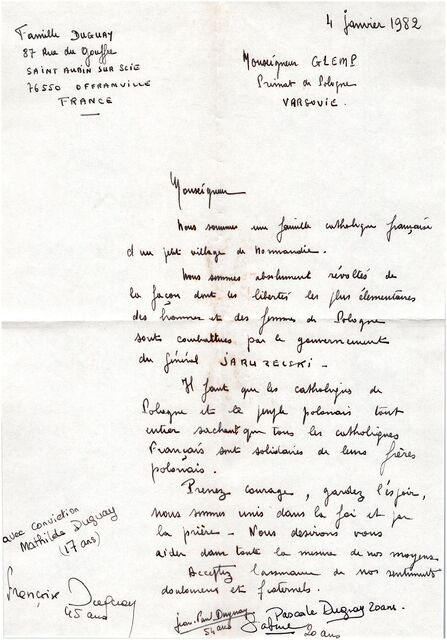 Famille DUGUAY
87 Rue du Gouffre
SAINT AUBIN SUR SCIE
76550 OFFRANVILLE
FRANCE
4 janvier 1982
Monseigneur GLEMP
Primat de Pologne
VARSOVIE.
Monseigneur
Nous sommes une famille catholique française
d'un petit village de Normandie.
Nous sommes absolument révoltés de
la façon dont les libertés les plus élémentaires
des hommes et des femmes de Pologne
sont combattues par le gouvernement
du général JARUZELSKI -
Il faut que les catholiques de
Pologne et le peuple polonais tout
entier sachent que tous les catholiques
Français sont solidaires de leurs frères
polonais.
Prenez courage, gardez l'espoir,
nous sommes unis dans la foi et par
la prière - Nous désirons vous
aider dans toute la mesure de nos moyens
Acceptez l'assurance de nos sentiments
douloureux et fraternels.
avec conviction
Mathilde Duguay
(17 ans)
Françoise Duguay
45 ans
Jean-Paul Duguay
54 ans
Pascale Duguay 20 ans
20 ans